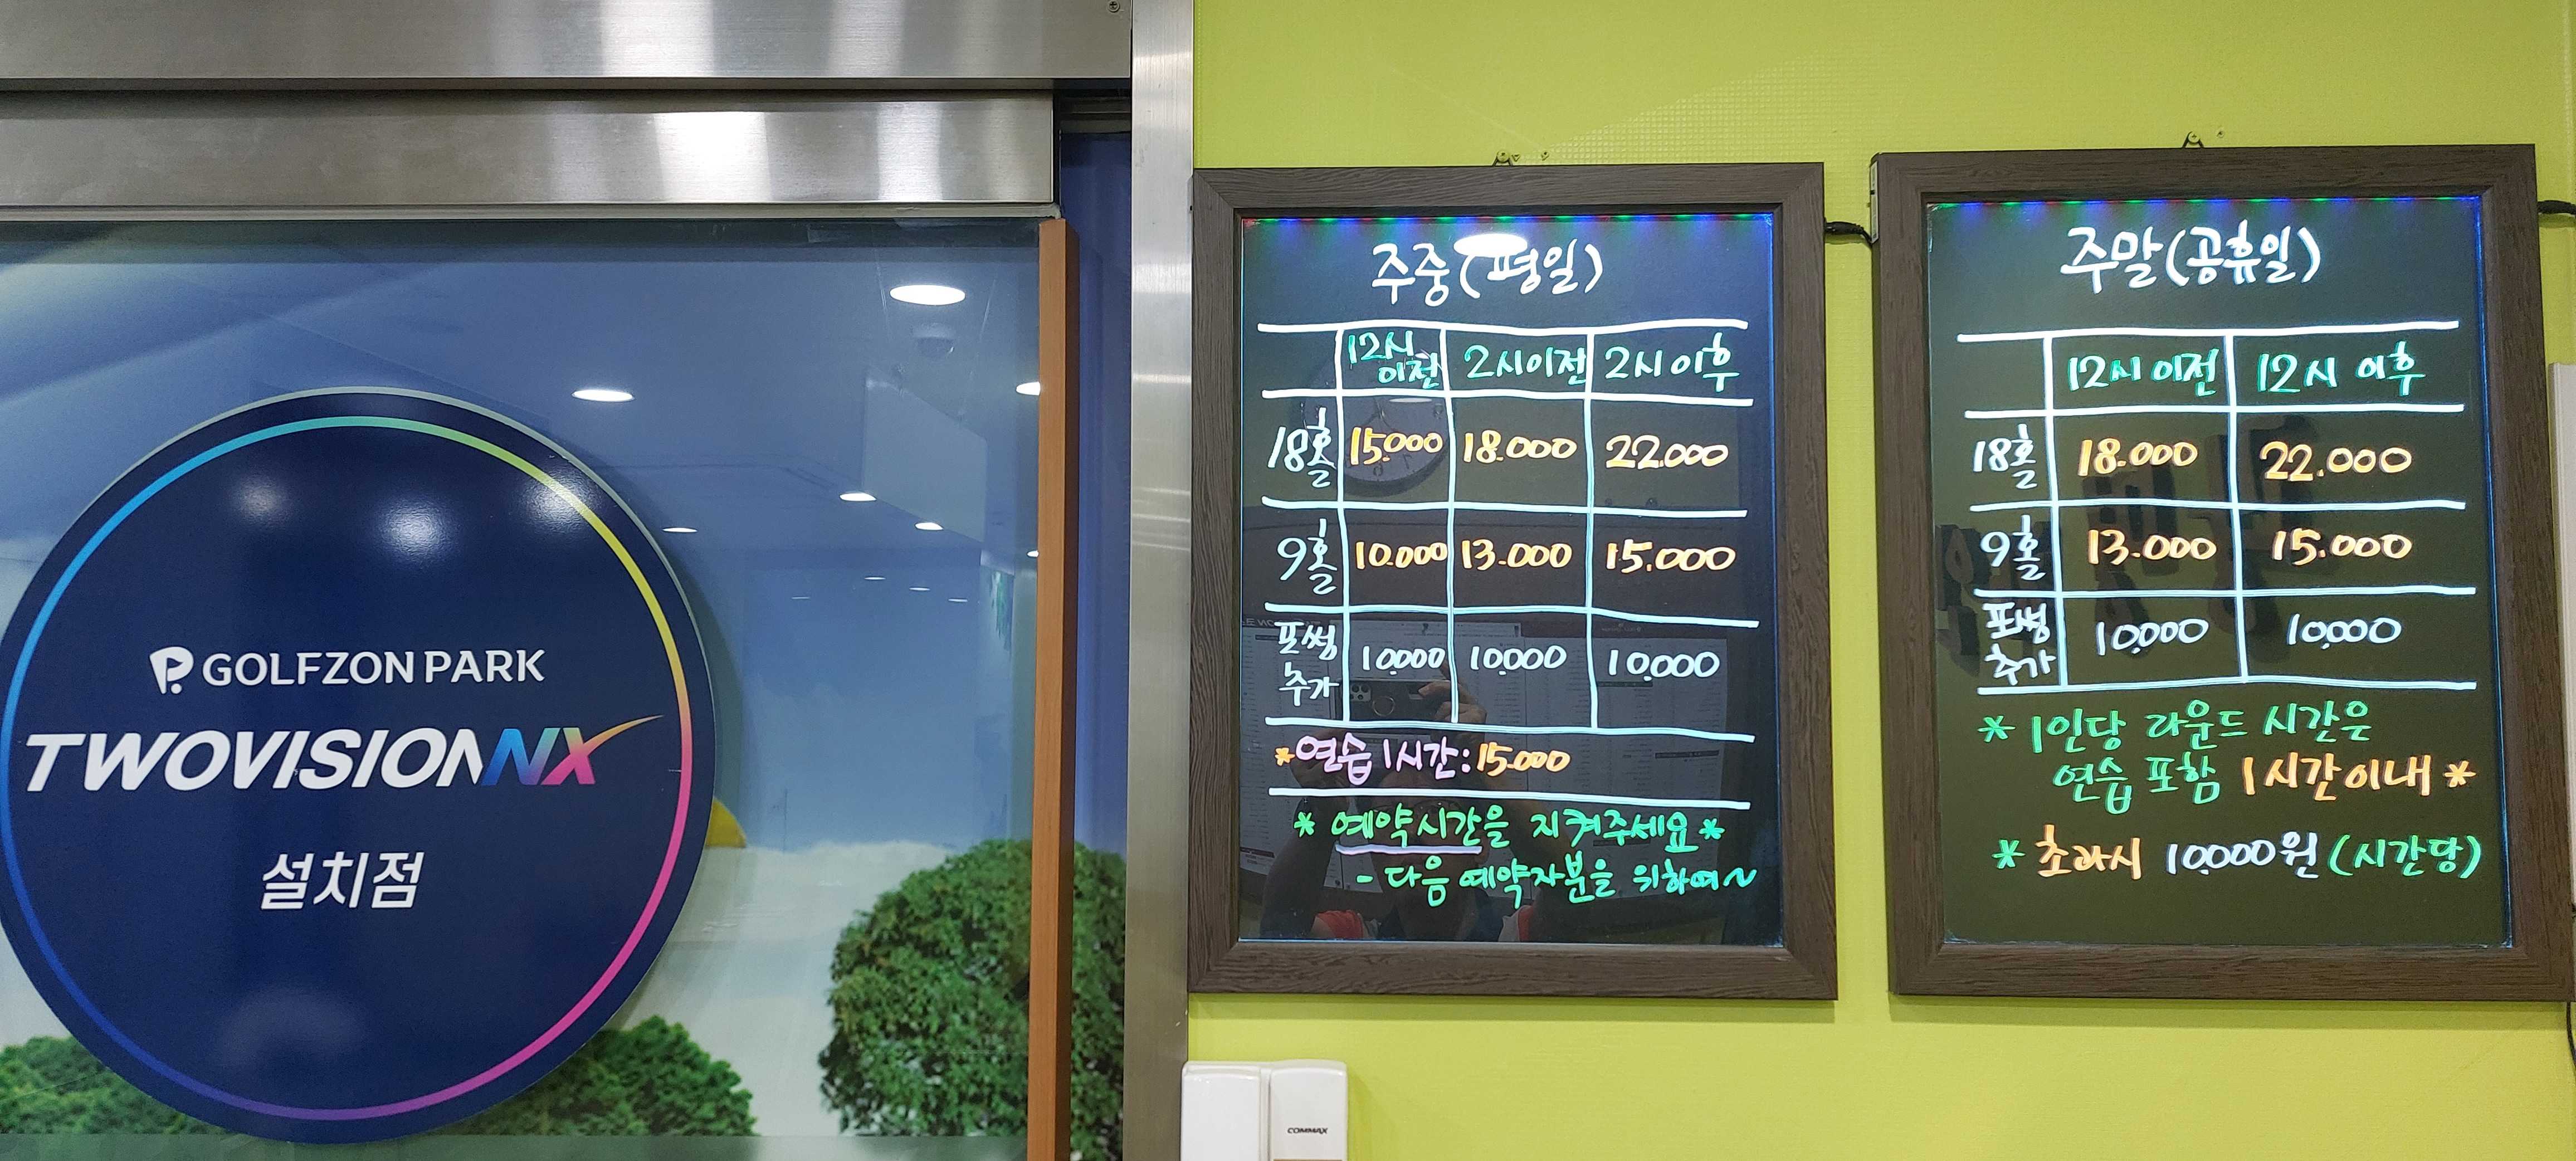 GOLFZON PARK
TWOVISIONNX
설치점
주중(평일)
12시 이전 2시이전 2시 이후
18홀 15.000 18.000 22.000
9홀 10.000 13.000 15.000
포썸 추가 10.000 10.000 10.000
*연습 1시간:15.000
* 예약시간을 지켜주세요*
- 다음 예약자분을 위하여~
주말(공휴일)
12시 이전 12시 이후
18홀 18.000 22.000
9홀 13.000 15.000
포썸 추가 10.000 10.000
* 1인당 라운드 시간은
연습 포함 1시간이내 *
* 초과시 10.000원 (시간당)
COMMAX